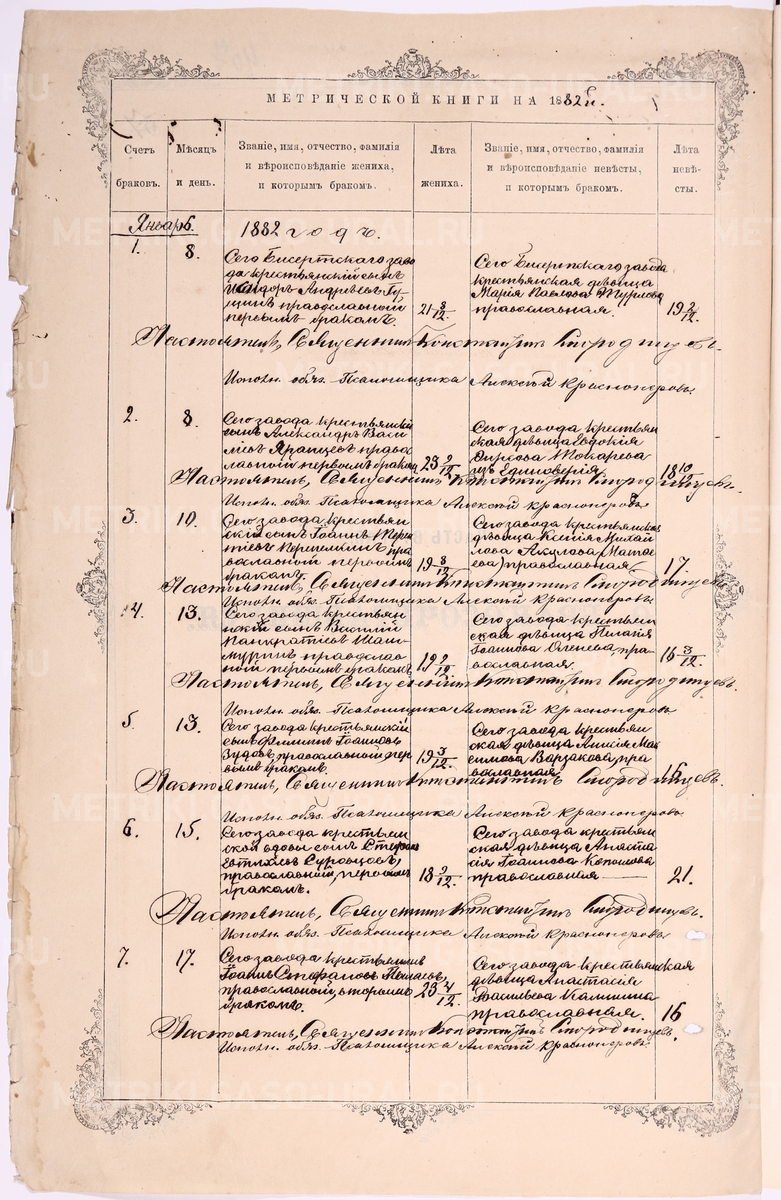 МЕТРИЧЕСКОЙ КНИГИ НА 1882 г.
Счетъ браковъ.
Мѣсяцъ и день.
Званіе, имя, отчество, фамилія и вѣроисповѣданіе жениха, и которымъ бракомъ.
Лѣта жениха.
Званіе, имя, отчество, фамилія и вѣроисповѣданіе невѣсты, и которымъ бракомъ.
Лѣта невѣсты.
Январь. 1882 годъ.
1. 8.
Сего Бисертскаго заво
да крестьянскій сынъ
Андреевъ
православный
первымъ бракомъ.
21 8/12
Сего Бисертскаго завода
крестьянская дѣвица
Марія Павлова
православная.
19 2/12
Настоятель, Священникъ Константинъ Стородницевъ.
Исполн. обяз. Псаломщика Алексѣй Красноперовъ
2. 8.
Сего завода крестьянскій
сынъ Александръ Васи
льевъ Ярянцевъ право
славный первымъ бракомъ
23 9/12
Сего завода крестьян
ская дѣвица Евдокія
Фирсова Токарева
изъ Единовѣрія.
18 10/12
Настоятель, Священникъ Константинъ Стородницевъ.
Исполн. обяз. Псаломщика Алексѣй Красноперовъ
3. 10.
Сего завода крестьян
скій сынъ Іоаннъ
православный первымъ
бракомъ.
19 8/12
Сего завода крестьянская
дѣвица Ксенія Михай
лова Акулова (Матве
ева) православная.
17.
Настоятель, Священникъ Константинъ Стородницевъ
Исполн. обяз. Псаломщика Алексѣй Красноперовъ
4. 13.
Сего завода крестьян
скій сынъ Василій
Панкратіевъ Шаш
муринъ православ
ный первымъ бракомъ
19 9/12
Сего завода крестьян
ская дѣвица Пелагія
Іоаннова пра
вославная.
16 3/12.
Настоятель, Священникъ Константинъ Стородницевъ.
Исполн. обяз. Псаломщика Алексѣй Красноперовъ
5. 13.
Сего завода крестьянскій
сынъ Филиппъ Іоанновъ
Зудовъ, православный пер
вымъ бракомъ.
19 3/12.
Сего завода крестьян
ская дѣвица Анисія Мак
симова Варзакова, пра
вославная
16.
Настоятель, Священникъ Константинъ Стородницевъ.
Исполн. обяз. Псаломщика Алексѣй Красноперовъ
6. 15.
Сего завода крестьян
ской вдовы сынъ
Евтихіевъ Суровцовъ,
православный, первымъ
бракомъ.
18 9/12.
Сего завода крестьян
ская дѣвица Анаста
сія Іоаннова Копылова
православная
21.
Настоятель, Священникъ Константинъ Стородницевъ.
Исполн. обяз. Псаломщика Алексѣй Красноперовъ
7. 17.
Сего завода крестьянинъ
Іоаннъ Стефановъ
православный, вторымъ
бракомъ.
23 4/12.
Сего завода крестьянская
дѣвица Анастасія
Васильева Калинина
православная.
16
Настоятель, Священникъ Константинъ Стородницевъ.
Исполн. обяз. Псаломщика Алексѣй Красноперовъ.